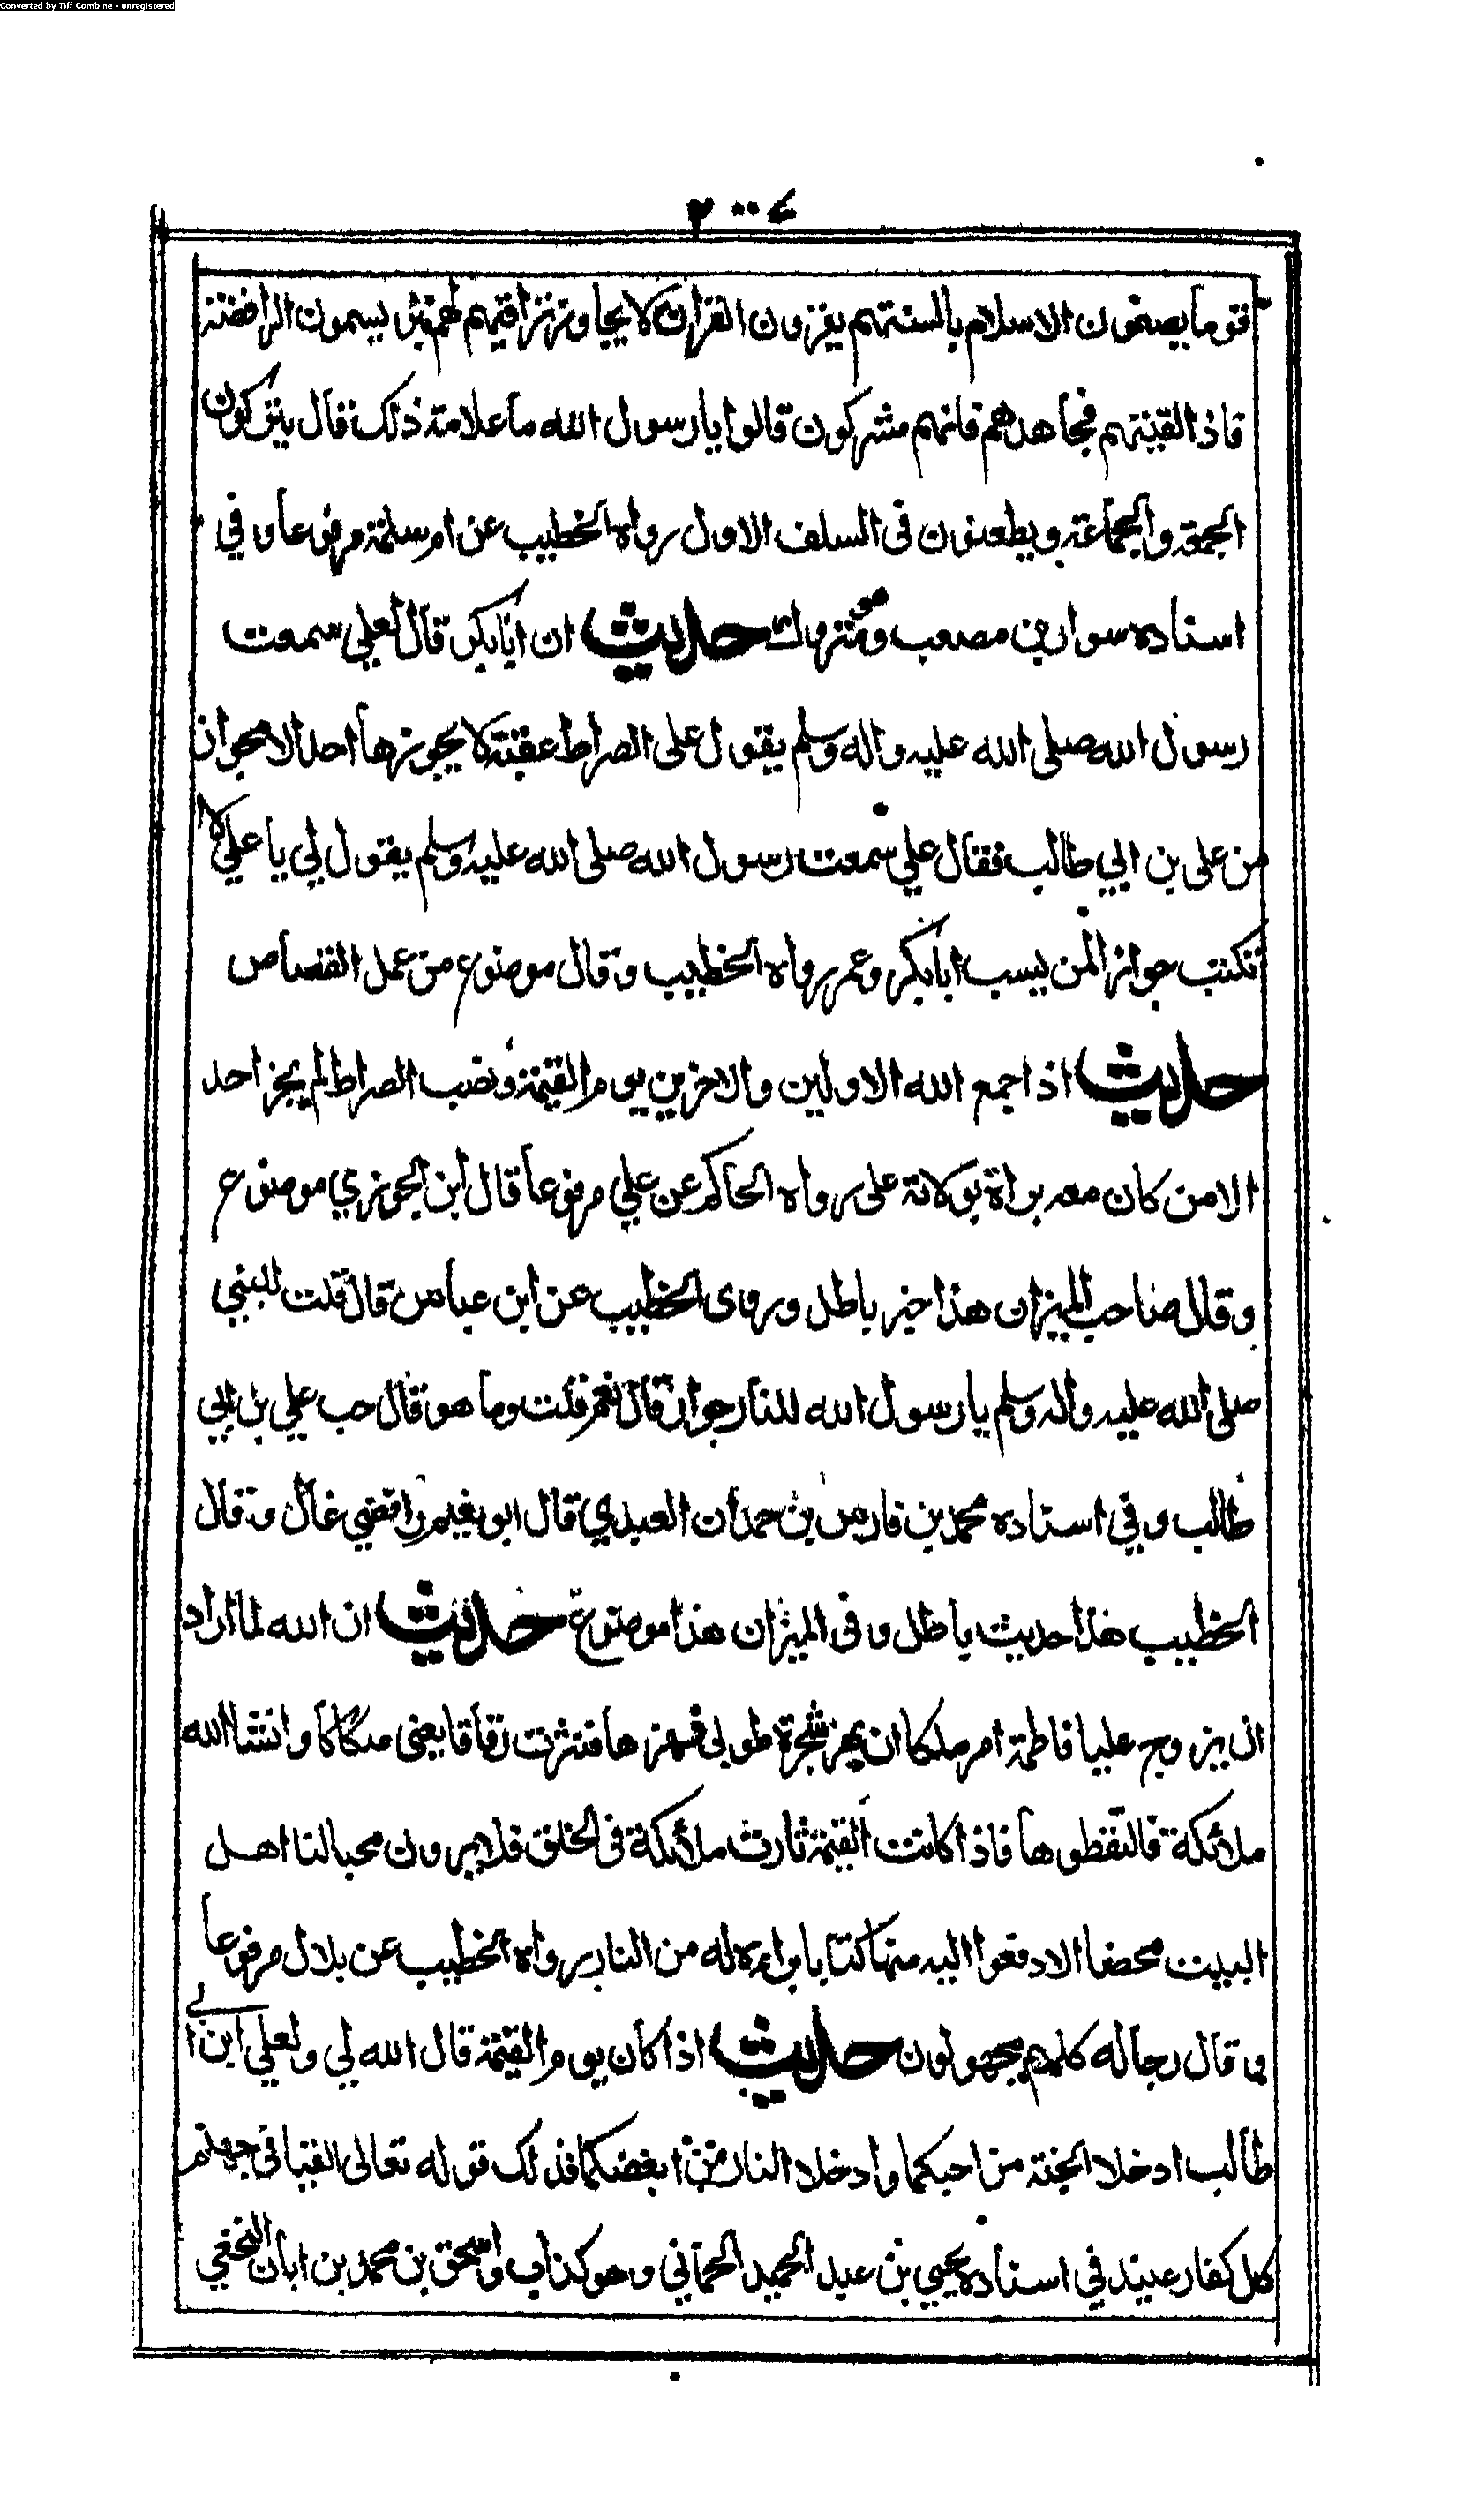 Converted by Tiff Combine - unregistered
قوما يصفون الاسلام بالسنتهم يقرؤن القران لا يجاوز تراقيهم لهم نبز يسمون الرافضة
فاذا لقيتهم فجاهدهم فانهم مشركون قالوا يا رسول الله ما علامة ذلك قال يتركون
الجمعة والجماعة ويطعنون فى السلف الاول رواه الخطيب عن ام سلمة مرفوعا وفي
اسناده سوار بن مصعب وهو متروك حديث ان ابا بكر قال لعلي سمعت
رسول الله صلى الله عليه واله وسلم يقول على الصراط عقبة لا يجوزها احد الا بجواز
من على بن ابي طالب فقال علي سمعت رسول الله صلى الله عليه وسلم يقول لي يا علي لا
تكتب جوازا لمن يسب ابا بكر وعمر رواه الخطيب وقال موضوع من عمل القصاص
حديث اذا جمع الله الاولين والاخرين يوم القيمة ونصب الصراط لم يجز احد
الا من كان معه براة بولاية على رواه الحاكم عن علي مرفوعا قال ابن الجوزي موضوع
وقال صاحب الميزان هذا خبر باطل وروى الخطيب عن ابن عباس قال قلت للنبي
صلى الله عليه واله وسلم يا رسول الله للنار جواز قال نعم قلت وما هو قال حب علي بن ابي
طالب وفي اسناده محمد بن فارس بن حمدان العبدي قال ابو نعيم رافضي غال وقال
الخطيب هذا حديث باطل وفى الميزان هذا موضوع حديث ان الله لما اراد
ان يزوج عليا فاطمة امر ملكا ان يهز شجرة طوبى فهزها فنثرت رقاقا يعنى صكاكا وانشا الله
ملائكة فالتقطوها فاذا كانت القيمة ثارت ملائكة فى الخلق فلا يرون محبا لنا اهل
البيت محضا الا دفعوا اليه منها كتابا براءة له من النار رواه الخطيب عن بلال مرفوعا
وقال رجاله كلهم مجهولون حديث اذا كان يوم القيمة قال الله لي ولعلي ابن ابي
طالب ادخلا الجنة من احبكما وادخلا النار من ابغضكما فذلك قوله تعالى القيا فى جهنم
كل كفار عنيد في اسناده يحيى بن عبد الحميد الحماني وهو كذاب واسحق بن محمد بن ابان النخعي